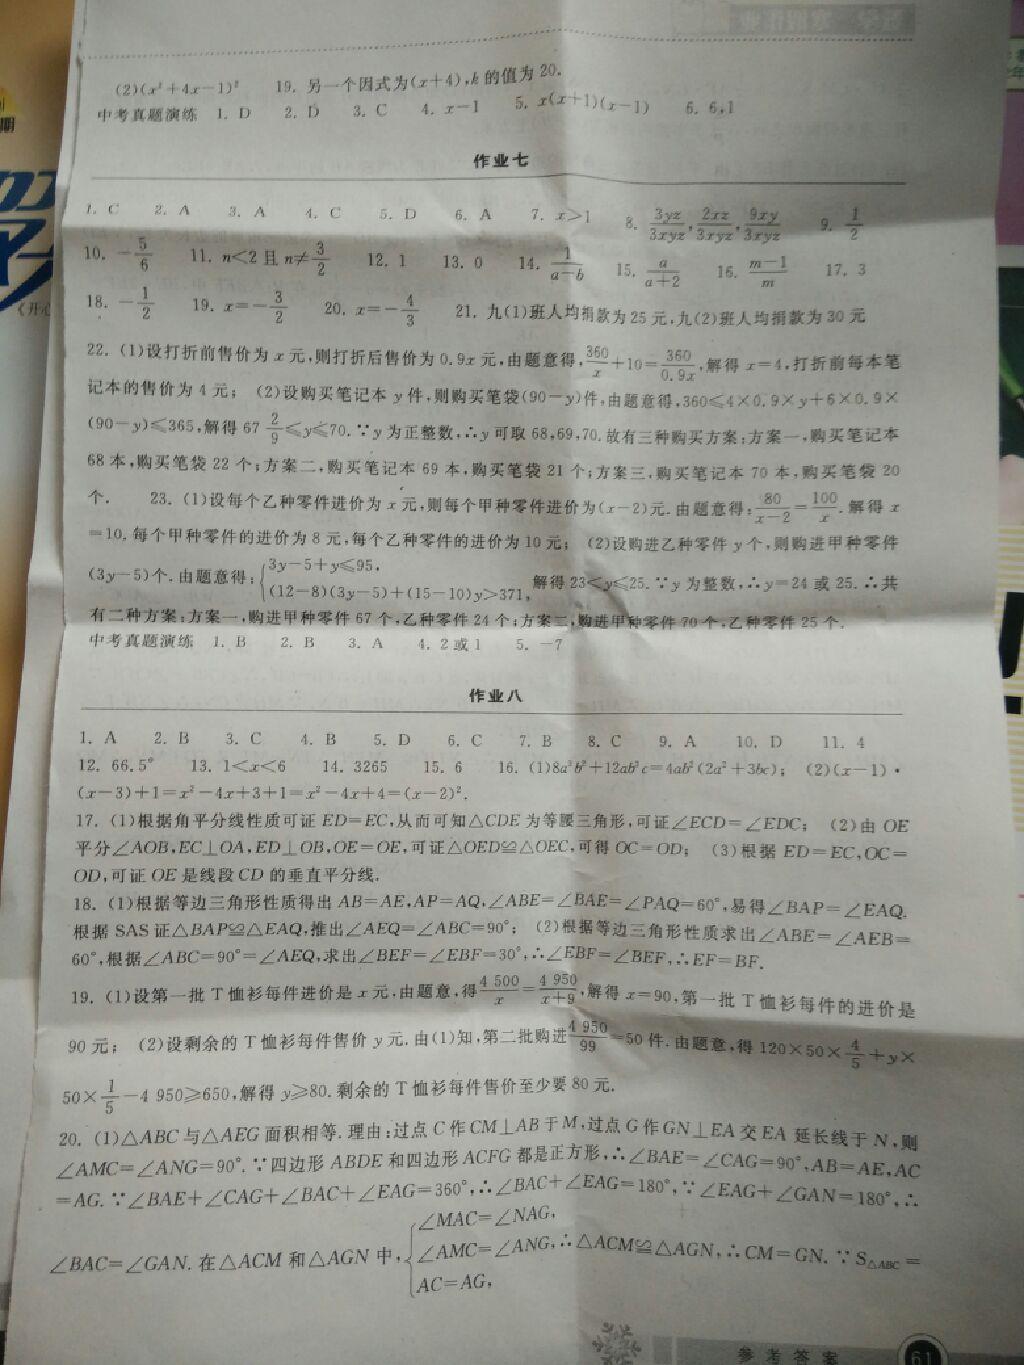 (2)(x²+4x-1)² 19. 另一个因式为(x+4),k的值为20.
中考真题演练 1. D 2. D 3. C 4. x-1 5. x(x+1)(x-1) 6. 6,1
作业七
1. C 2. A 3. A 4. C 5. D 6. A 7. x>1 8. 3yz/3xyz, 2xz/3xyz, 9xy/3xyz 9. 1/2
10. -5/6 11. n<2且n≠3/2 12. 1 13. 0 14. 1/(a-b) 15. a/(a+2) 16. (m-1)/m 17. 3
18. -1/2 19. x=-3/2 20. x=-4/3 21. 九(1)班人均捐款为25元,九(2)班人均捐款为30元
22. (1)设打折前售价为x元,则打折后售价为0.9x元,由题意得,360/x+10=360/0.9x,解得x=4,打折前每本笔
记本的售价为4元; (2)设购买笔记本y件,则购买笔袋(90-y)件,由题意得,360≤4×0.9×y+6×0.9×
(90-y)≤365,解得67 2/9≤y≤70.∵y为正整数,∴y可取68,69,70.故有三种购买方案:方案一,购买笔记本
68本,购买笔袋22个;方案二,购买笔记本69本,购买笔袋21个;方案三,购买笔记本70本,购买笔袋20
个. 23. (1)设每个乙种零件进价为x元,则每个甲种零件进价为(x-2)元.由题意得:80/(x-2)=100/x.解得x
=10.每个甲种零件的进价为8元,每个乙种零件的进价为10元; (2)设购进乙种零件y个,则购进甲种零件
(3y-5)个.由题意得:{3y-5+y≤95,
(12-8)(3y-5)+(15-10)y>371, 解得23<y≤25.∵y为整数,∴y=24或25.∴共
有二种方案:方案一,购进甲种零件67个,乙种零件24个;方案二,购进甲种零件70个,乙种零件25个.
中考真题演练 1. B 2. B 3. A 4. 2或1 5. -7
作业八
1. A 2. B 3. C 4. B 5. D 6. C 7. B 8. C 9. A 10. D 11. 4
12. 66.5° 13. 1<x<6 14. 3265 15. 6 16. (1)8a³b²+12ab³c=4ab²(2a²+3bc); (2)(x-1)·
(x-3)+1=x²-4x+3+1=x²-4x+4=(x-2)².
17. (1)根据角平分线性质可证ED=EC,从而可知△CDE为等腰三角形,可证∠ECD=∠EDC; (2)由OE
平分∠AOB,EC⊥OA,ED⊥OB,OE=OE,可证△OED≌△OEC,可得OC=OD; (3)根据ED=EC,OC=
OD,可证OE是线段CD的垂直平分线.
18. (1)根据等边三角形性质得出AB=AE,AP=AQ,∠ABE=∠BAE=∠PAQ=60°,易得∠BAP=∠EAQ.
根据SAS证△BAP≌△EAQ,推出∠AEQ=∠ABC=90°; (2)根据等边三角形性质求出∠ABE=∠AEB=
60°,根据∠ABC=90°=∠AEQ,求出∠BEF=∠EBF=30°,∴∠EBF=∠BEF,∴EF=BF.
19. (1)设第一批T恤衫每件进价是x元,由题意,得4 500/x=4 950/(x+9),解得x=90,第一批T恤衫每件的进价是
90元; (2)设剩余的T恤衫每件售价y元.由(1)知,第二批购进4 950/99=50件.由题意,得120×50×4/5+y×
50×1/5-4 950≥650,解得y≥80.剩余的T恤衫每件售价至少要80元.
20. (1)△ABC与△AEG面积相等.理由:过点C作CM⊥AB于M,过点G作GN⊥EA交EA延长线于N,则
∠AMC=∠ANG=90°.∵四边形ABDE和四边形ACFG都是正方形,∴∠BAE=∠CAG=90°,AB=AE,AC
=AG.∵∠BAE+∠CAG+∠BAC+∠EAG=360°,∴∠BAC+∠EAG=180°,∵∠EAG+∠GAN=180°,∴
∠BAC=∠GAN.在△ACM和△AGN中,{∠MAC=∠NAG,
∠AMC=∠ANG,∴△ACM≌△AGN,∴CM=GN.∵S△ABC=
AC=AG,
参考答案 61